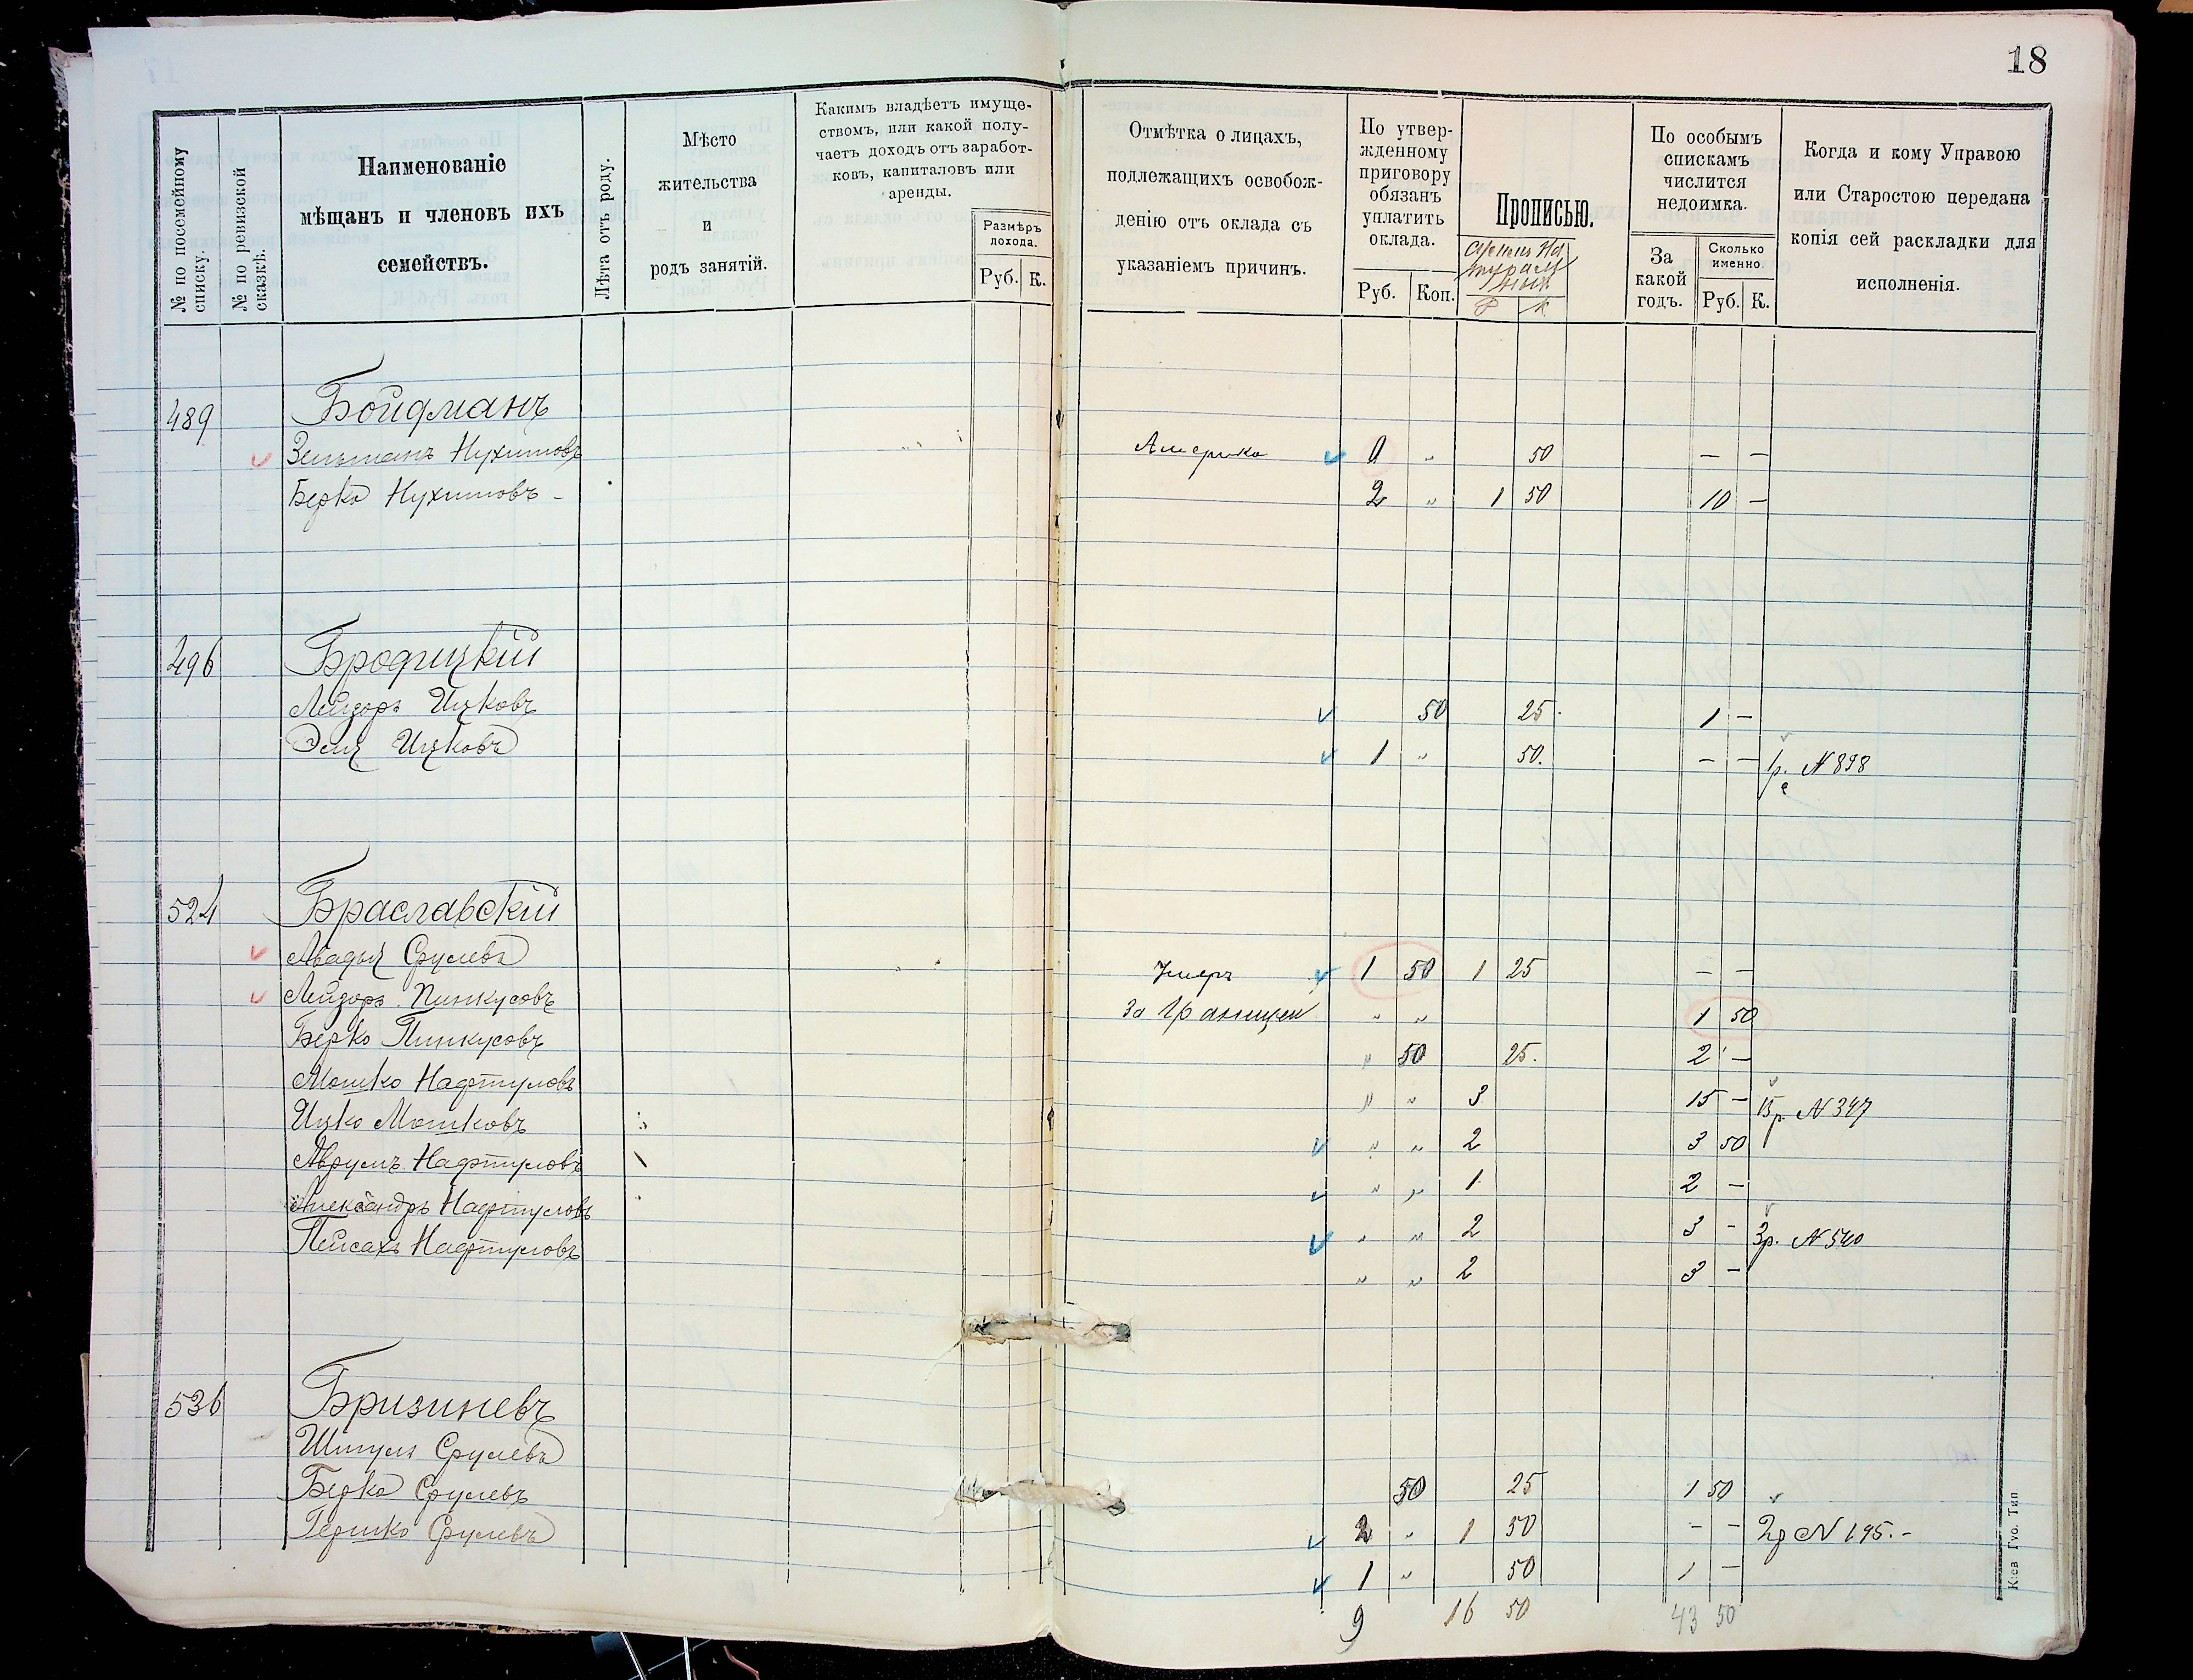 18
№ по посемейному списку.
№ по ревизской сказкѣ.
Наименованіе
мѣщанъ и членовъ ихъ
семействъ.
Лѣта отъ роду.
Мѣсто
жительства
и
родъ занятій.
Какимъ владѣетъ имуще-
ствомъ, или какой полу-
чаетъ доходъ отъ заработ-
ковъ, капиталовъ или
аренды.
Размѣръ
дохода.
Руб. К.
Отмѣтка о лицахъ,
подлежащихъ освобож-
денію отъ оклада съ
указаніемъ причинъ.
По утвер-
жденному
приговору
обязанъ
уплатить
оклада.
Руб. Коп.
Прописью.
Р К
По особымъ
спискамъ
числится
недоимка.
За
какой
годъ.
Сколько
именно
Руб. К.
Когда и кому Управою
или Старостою передана
копія сей раскладки для
исполненія.
489 Бойдманъ
Зельманъ Нухимовъ Америка 0 " 50 — —
Берко Нухимовъ - 2 " 1 50 10 —
496 Бродицкій
Лейзоръ Ицковъ 50 25. 1 —
Эля Ицковъ 1 " 50. — — 1р. N 898
524 Браславскій
Авадья Срулевъ Умеръ 1 50 1 25 — —
Лейзоръ Пинкусовъ за Границей " " 1 50
Берко Пинкусовъ " 50 25. 2 —
Мошко Нафтуловъ " " 3 15 — 15р. N 347
Ицко Мошковъ " " 2 3 50
Аврумъ Нафтуловъ " " 1 2 —
Александръ Нафтуловъ " " 2 3 - 3р. N 540
Пейсахъ Нафтуловъ " " 2 3 —
536 Бризиневъ
Шмуль Срулевъ 50 25 1 50
Берко Срулевъ 2 " 1 50 — — 2р N 195.-
Гершко Срулевъ 1 " 50 1 —
9 16 50 43 50
Кіев Гуо. Тип